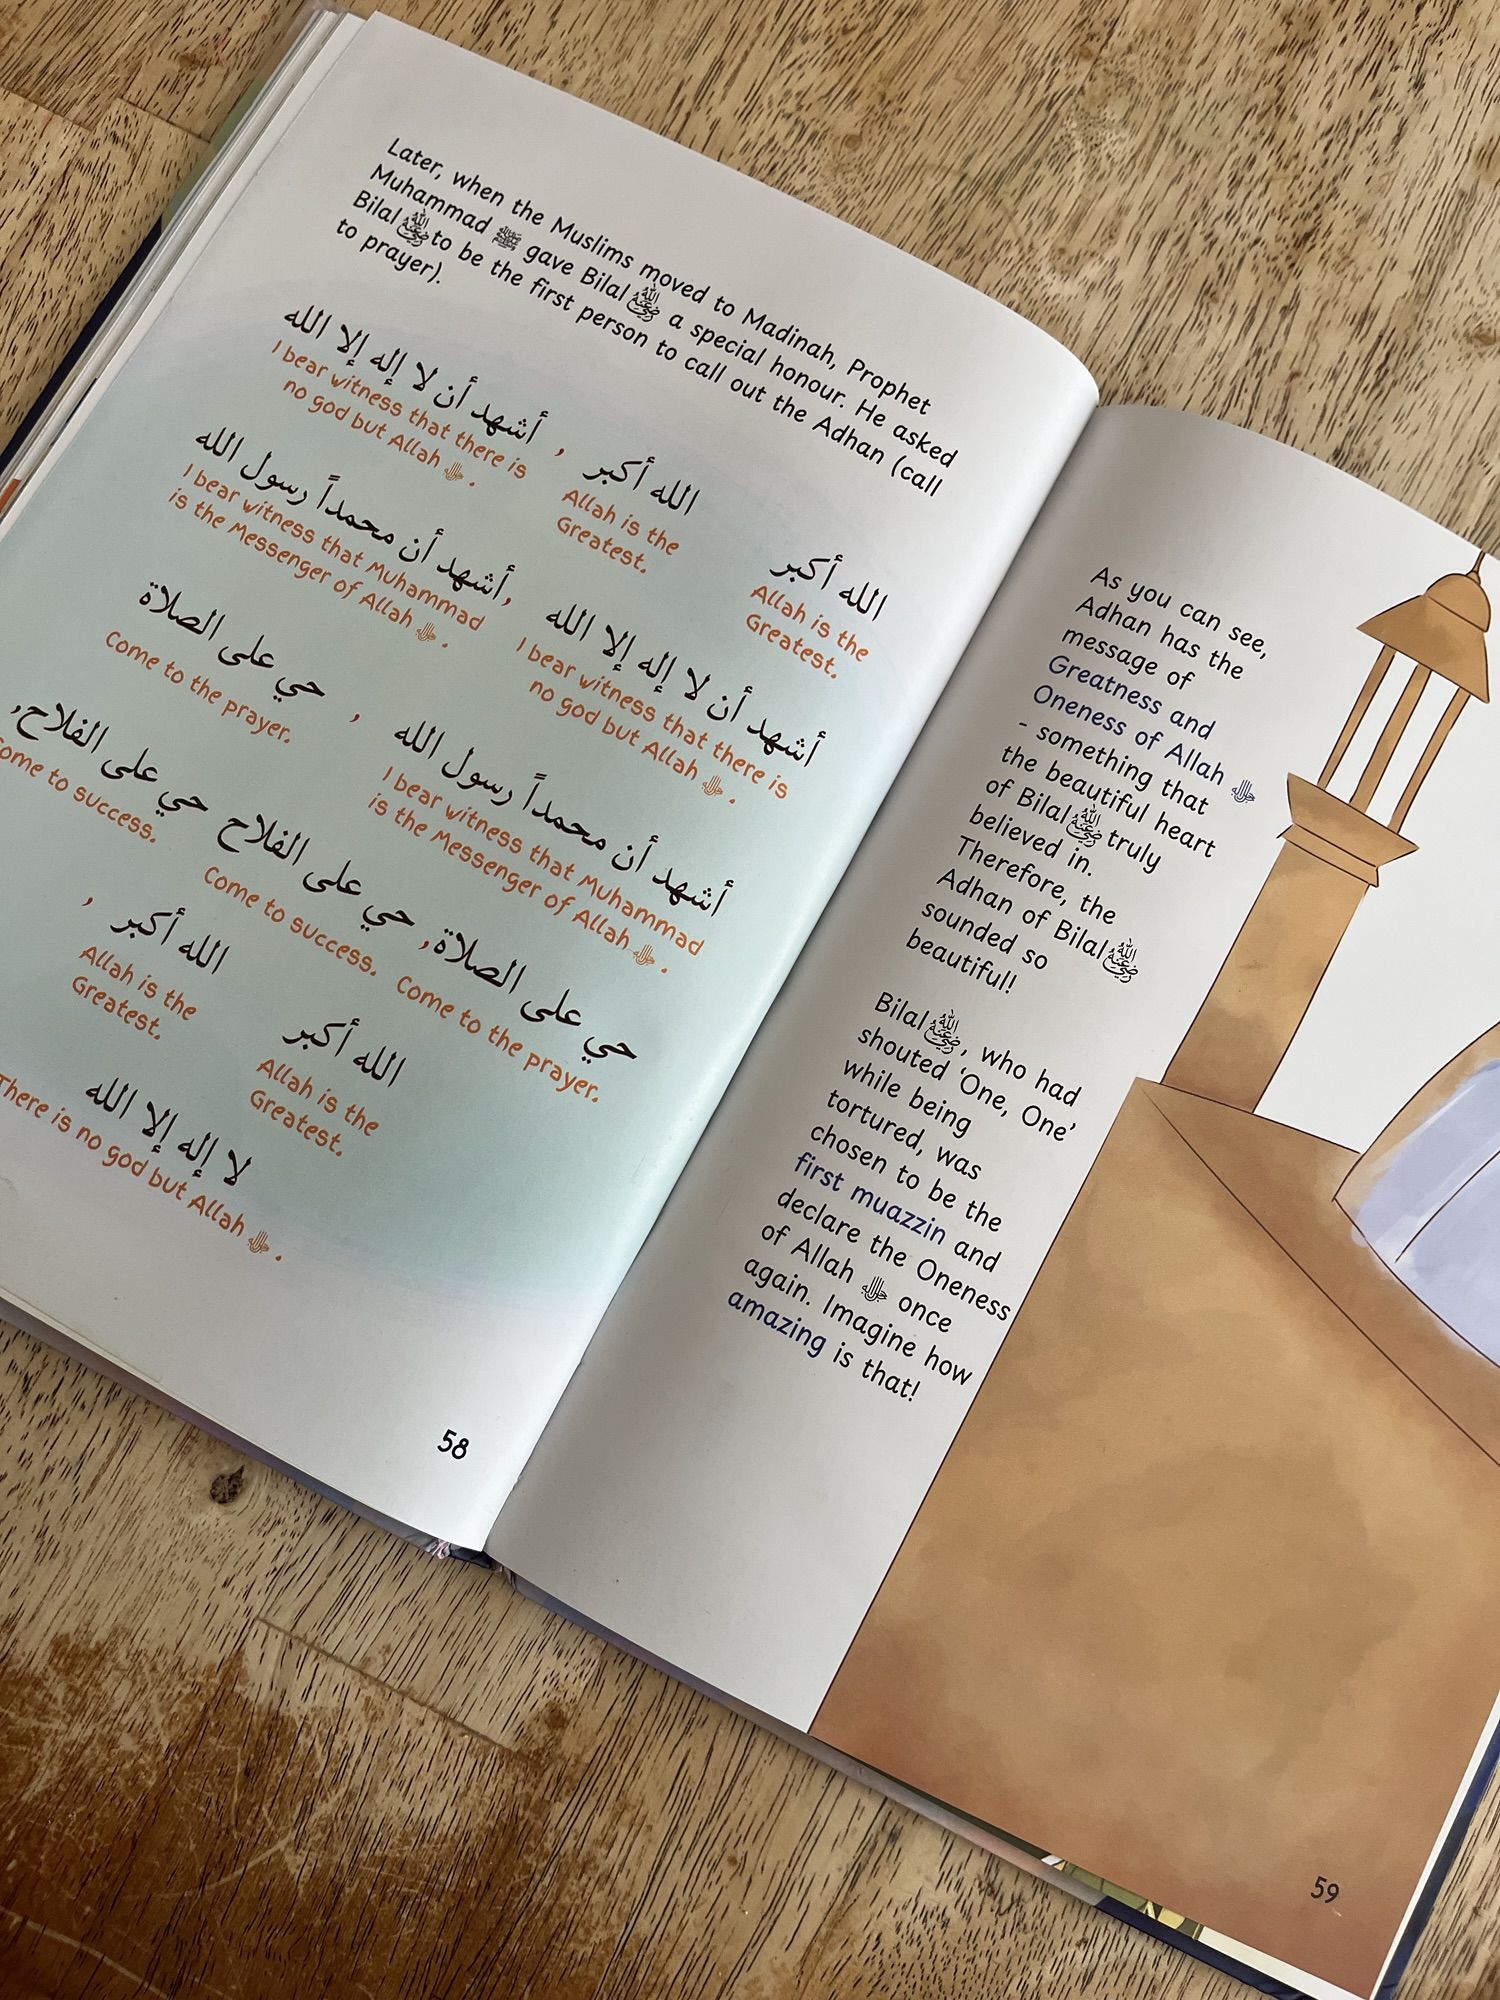 Later, when the Muslims moved to Madinah, Prophet
Muhammad ﷺ gave Bilal رضي الله عنه a special honour. He asked
Bilal رضي الله عنه to be the first person to call out the Adhan (call
to prayer).
الله أكبر
Allah is the
Greatest.
الله أكبر ,
Allah is the
Greatest.
أشهد أن لا إله إلا الله
I bear witness that there is
no god but Allah ﷻ .
أشهد أن لا إله إلا الله
I bear witness that there is
no god but Allah ﷻ .
أشهد أن محمداً رسول الله ,
I bear witness that Muhammad
is the Messenger of Allah ﷻ .
أشهد أن محمداً رسول الله
I bear witness that Muhammad
is the Messenger of Allah ﷻ .
حي على الصلاة ,
Come to the prayer.
حي على الصلاة ,
Come to the prayer.
حي على الفلاح
Come to success.
حي على الفلاح ,
ome to success.
الله أكبر
Allah is the
Greatest.
الله أكبر ,
Allah is the
Greatest.
لا إله إلا الله
There is no god but Allah ﷻ .
58
As you can see,
Adhan has the
message of
Greatness and
Oneness of Allah ﷻ
- something that
the beautiful heart
of Bilal رضي الله عنه truly
believed in.
Therefore, the
Adhan of Bilal رضي الله عنه
sounded so
beautiful!
Bilal رضي الله عنه, who had
shouted ‘One, One’
while being
tortured, was
chosen to be the
first muazzin and
declare the Oneness
of Allah ﷻ once
again. Imagine how
amazing is that!
59